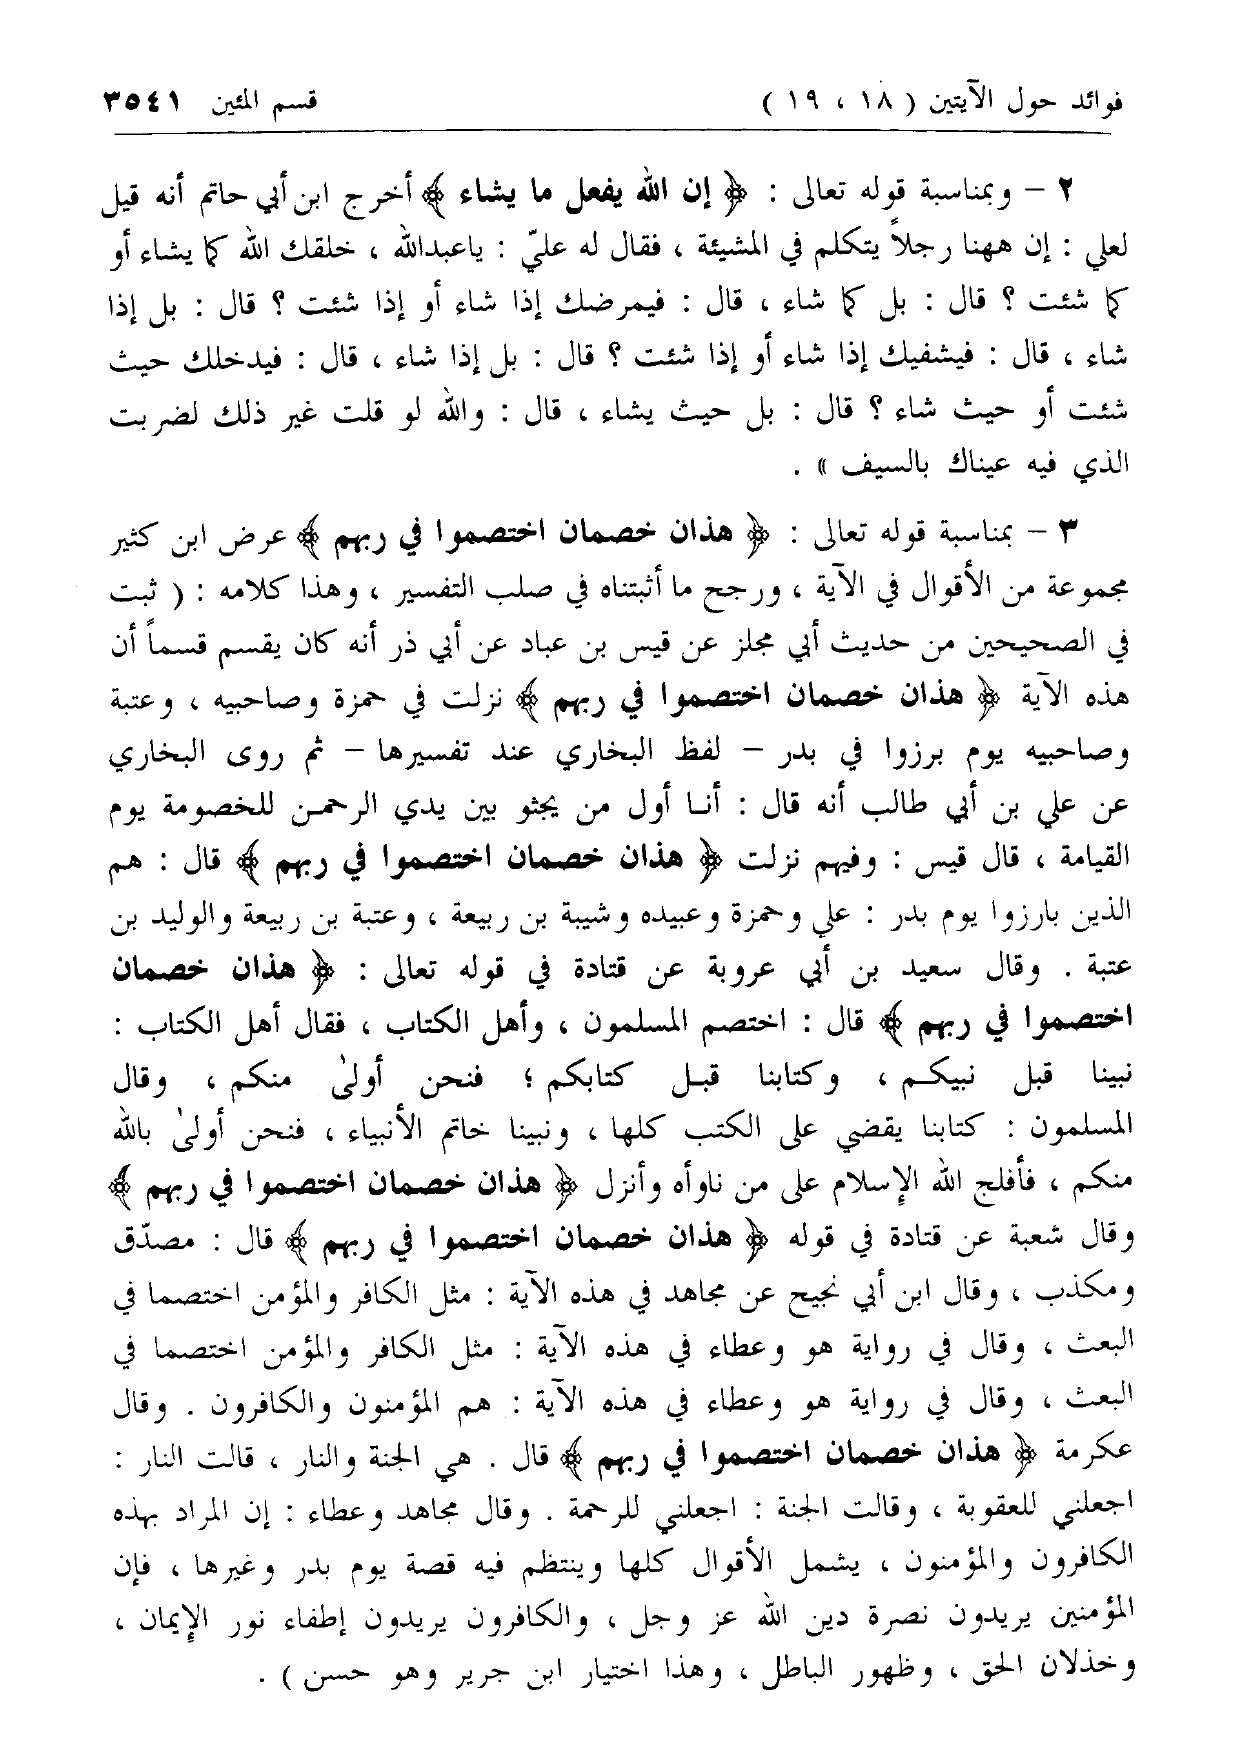 فوائد حول الآيتين ( ١٨ ، ١٩ ) قسم المئين ٣٥٤١
٢ – وبمناسبة قوله تعالى : ﴿ إن الله يفعل ما يشاء ﴾ أخرج ابن أبي حاتم أنه قيل
لعلي : إن ههنا رجلاً يتكلم في المشيئة ، فقال له عليّ : ياعبدالله ، خلقك الله كما يشاء أو
كما شئت ؟ قال : بل كما شاء ، قال : فيمرضك إذا شاء أو إذا شئت ؟ قال : بل إذا
شاء ، قال : فيشفيك إذا شاء أو إذا شئت ؟ قال : بل إذا شاء ، قال : فيدخلك حيث
شئت أو حيث شاء ؟ قال : بل حيث يشاء ، قال : والله لو قلت غير ذلك لضربت
الذي فيه عيناك بالسيف » .
٣ – بمناسبة قوله تعالى : ﴿ هذان خصمان اختصموا في ربهم ﴾ عرض ابن كثير
مجموعة من الأقوال في الآية ، ورجح ما أثبتناه في صلب التفسير ، وهذا كلامه : ( ثبت
في الصحيحين من حديث أبي مجلز عن قيس بن عباد عن أبي ذر أنه كان يقسم قسماً أن
هذه الآية ﴿ هذان خصمان اختصموا في ربهم ﴾ نزلت في حمزة وصاحبيه ، وعتبة
وصاحبيه يوم برزوا في بدر – لفظ البخاري عند تفسيرها – ثم روى البخاري
عن علي بن أبي طالب أنه قال : أنا أول من يجثو بين يدي الرحمن للخصومة يوم
القيامة ، قال قيس : وفيهم نزلت ﴿ هذان خصمان اختصموا في ربهم ﴾ قال : هم
الذين بارزوا يوم بدر : علي وحمزة وعبيده وشيبة بن ربيعة ، وعتبة بن ربيعة والوليد بن
عتبة . وقال سعيد بن أبي عروبة عن قتادة في قوله تعالى : ﴿ هذان خصمان
اختصموا في ربهم ﴾ قال : اختصم المسلمون ، وأهل الكتاب ، فقال أهل الكتاب :
نبينا قبل نبيكم ، وكتابنا قبل كتابكم ؛ فنحن أولىٰ منكم ، وقال
المسلمون : كتابنا يقضي على الكتب كلها ، ونبينا خاتم الأنبياء ، فنحن أولىٰ بالله
منكم ، فأفلج الله الإسلام على من ناوأه وأنزل ﴿ هذان خصمان اختصموا في ربهم ﴾
وقال شعبة عن قتادة في قوله ﴿ هذان خصمان اختصموا في ربهم ﴾ قال : مصدّق
ومكذب ، وقال ابن أبي نجيح عن مجاهد في هذه الآية : مثل الكافر والمؤمن اختصما في
البعث ، وقال في رواية هو وعطاء في هذه الآية : مثل الكافر والمؤمن اختصما في
البعث ، وقال في رواية هو وعطاء في هذه الآية : هم المؤمنون والكافرون . وقال
عكرمة ﴿ هذان خصمان اختصموا في ربهم ﴾ قال . هي الجنة والنار ، قالت النار :
اجعلني للعقوبة ، وقالت الجنة : اجعلني للرحمة . وقال مجاهد وعطاء : إن المراد بهذه
الكافرون والمؤمنون ، يشمل الأقوال كلها وينتظم فيه قصة يوم بدر وغيرها ، فإن
المؤمنين يريدون نصرة دين الله عز وجل ، والكافرون يريدون إطفاء نور الإيمان ،
وخذلان الحق ، وظهور الباطل ، وهذا اختيار ابن جرير وهو حسن ) .